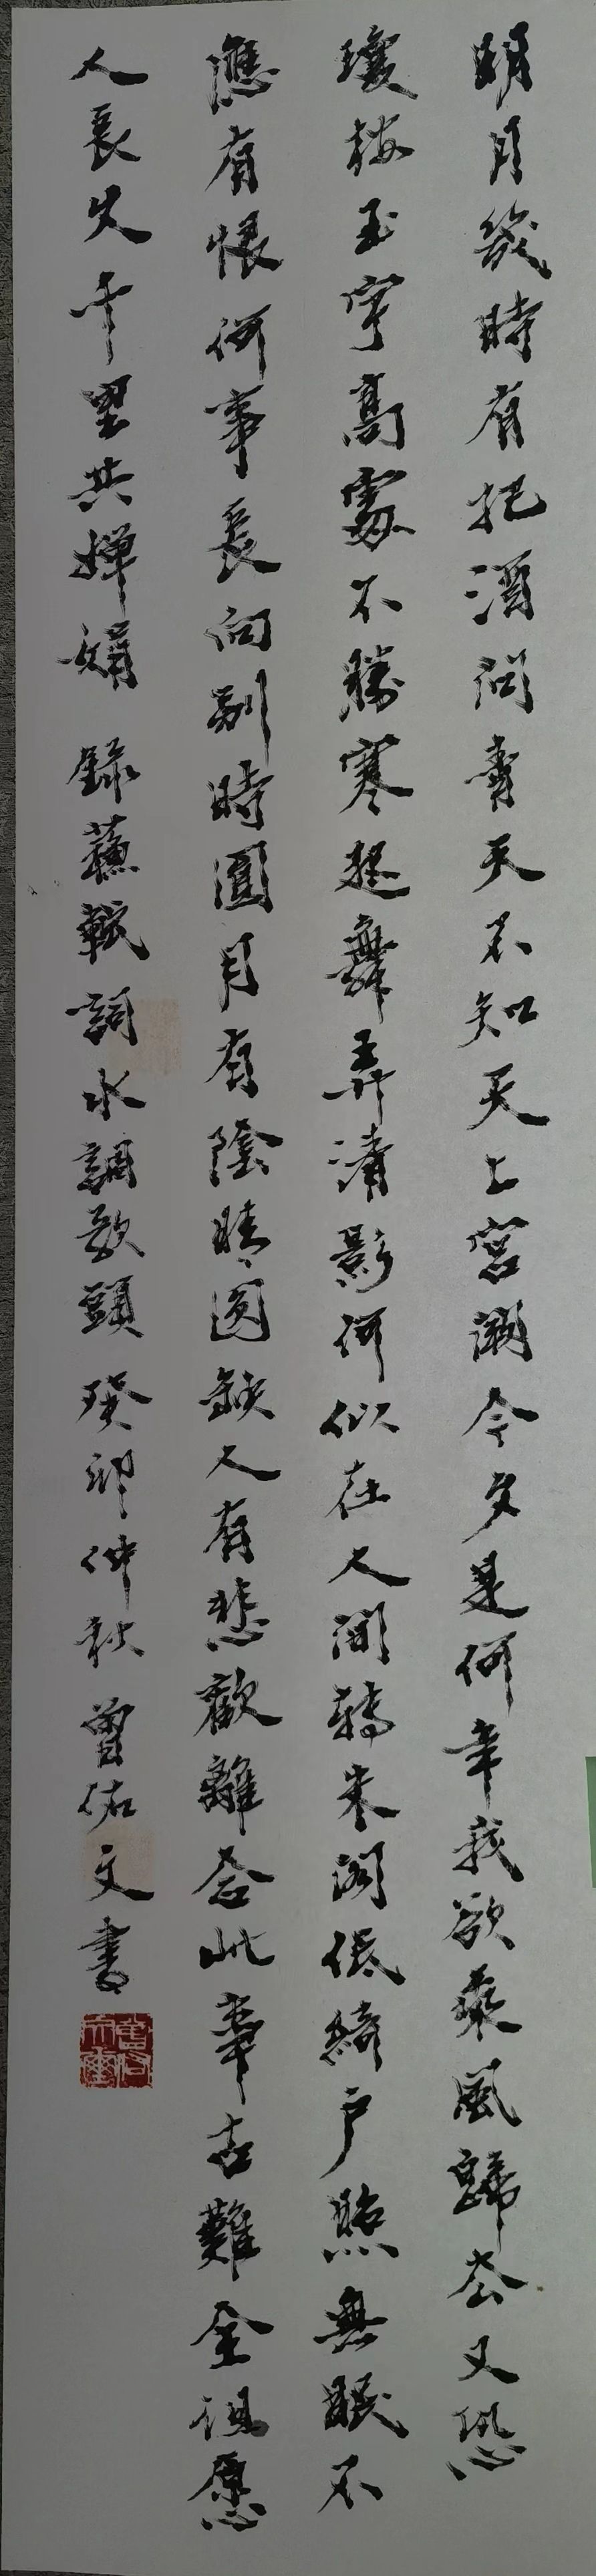 明月幾時有把酒問青天不知天上宮闕今夕是何年我欲乘風歸去又恐
瓊楼玉宇高處不勝寒起舞弄清影何似在人間轉朱閣低綺戶照無眠不
應有恨何事長向別時圓月有陰晴圓缺人有悲歡離合此事古難全但愿
人長久千里共嬋娟 錄蘇軾詞水調歌頭 癸卯仲秋 曾佑文書